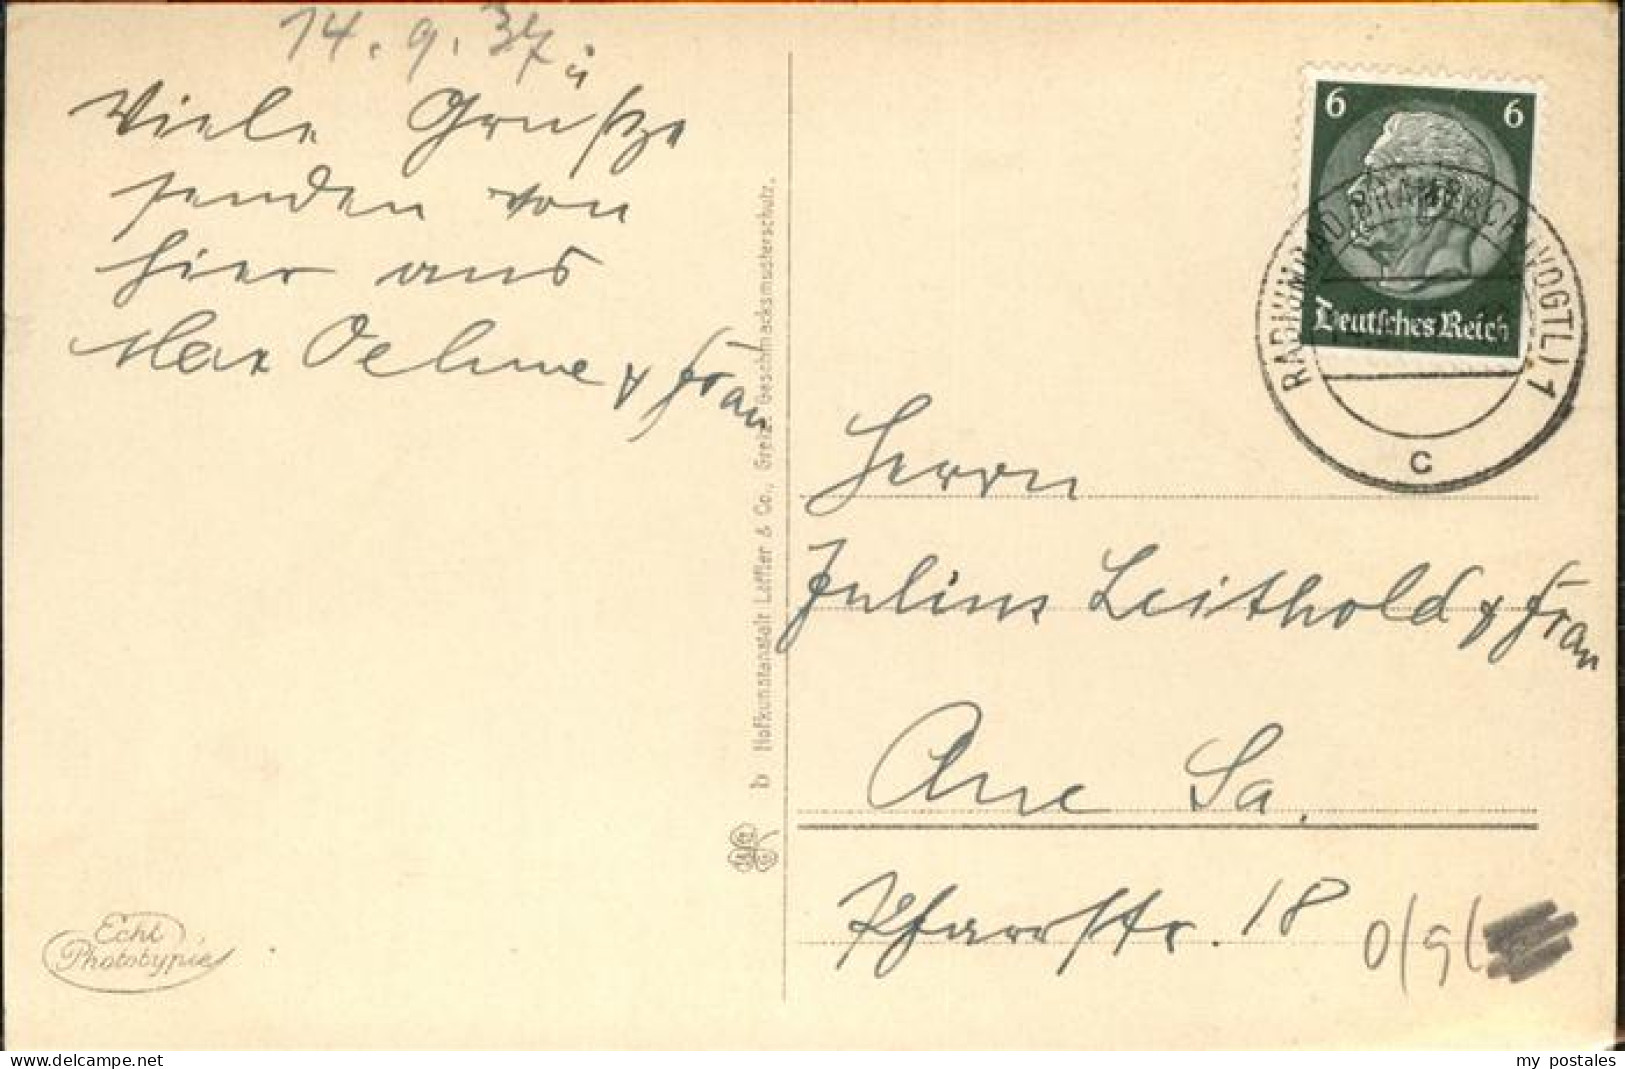 14. 9. 37
Viele Grüße
senden von
hier aus
Max Oehme & Frau
Hofkunstanstalt Löffler & Co., Greiz. Geschmacksmusterschutz.
b
Echt
Phototypie
6 6
Deutsches Reich
RADIUMBAD BRAMBACH (VOGTL) 1
c
Herrn
Julius Leithold & Frau
Aue Sa.
Pfarrstr. 18
0/9/
my postales